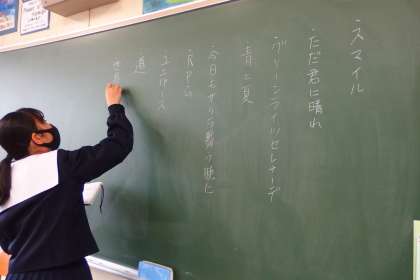 ・スマイル
・ただ君に晴れ
・グリーンライツセレナーデ
・青と夏
・今日もサクラ舞う暁に
・RPG
・ユニバース
・道